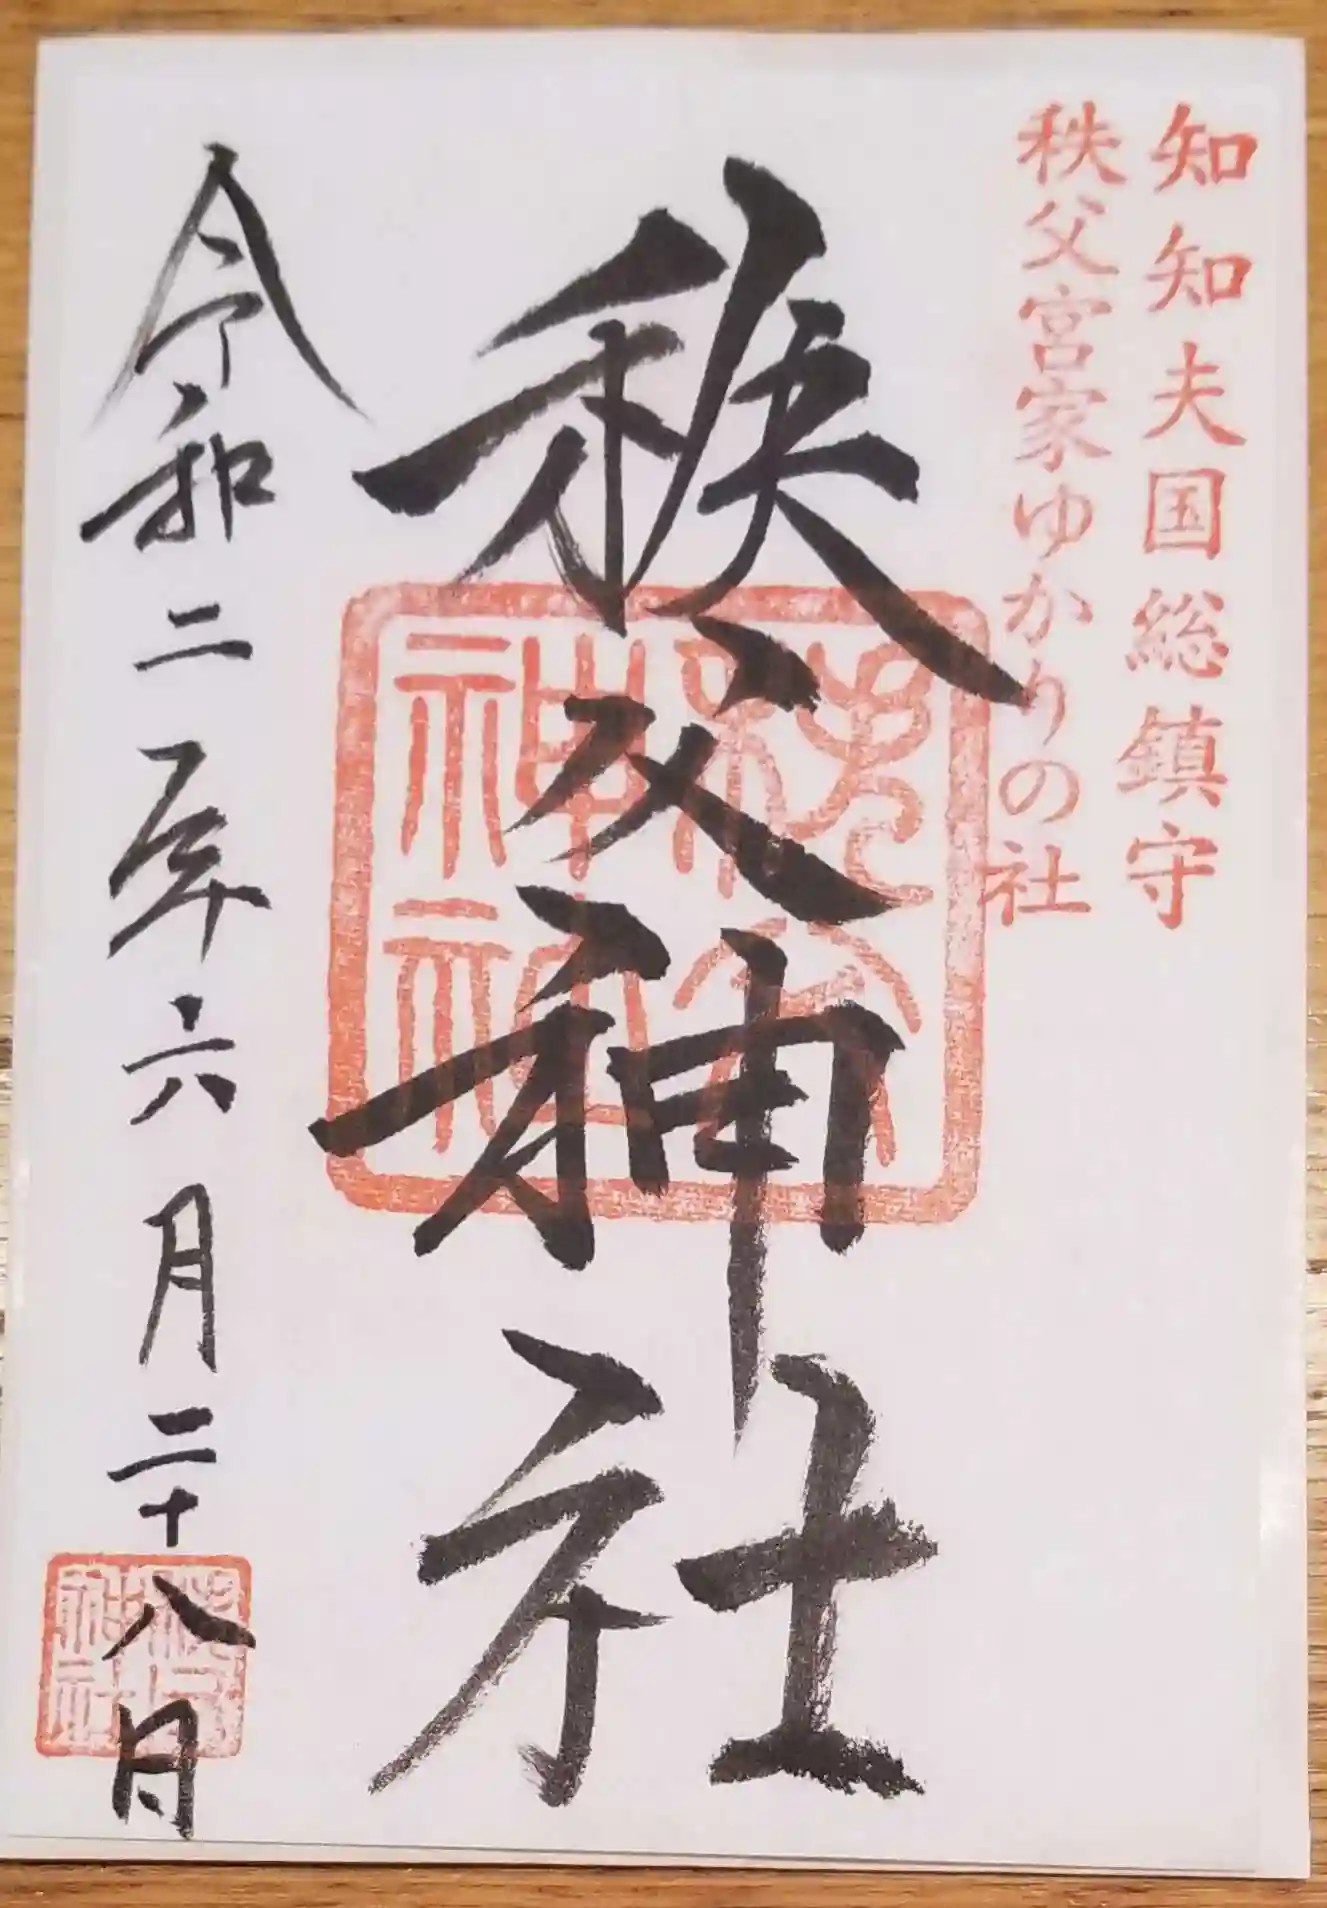 知知夫国総鎮守
秩父宮家ゆかりの社
秩父神社
秩父神社
令和二年六月二十八日